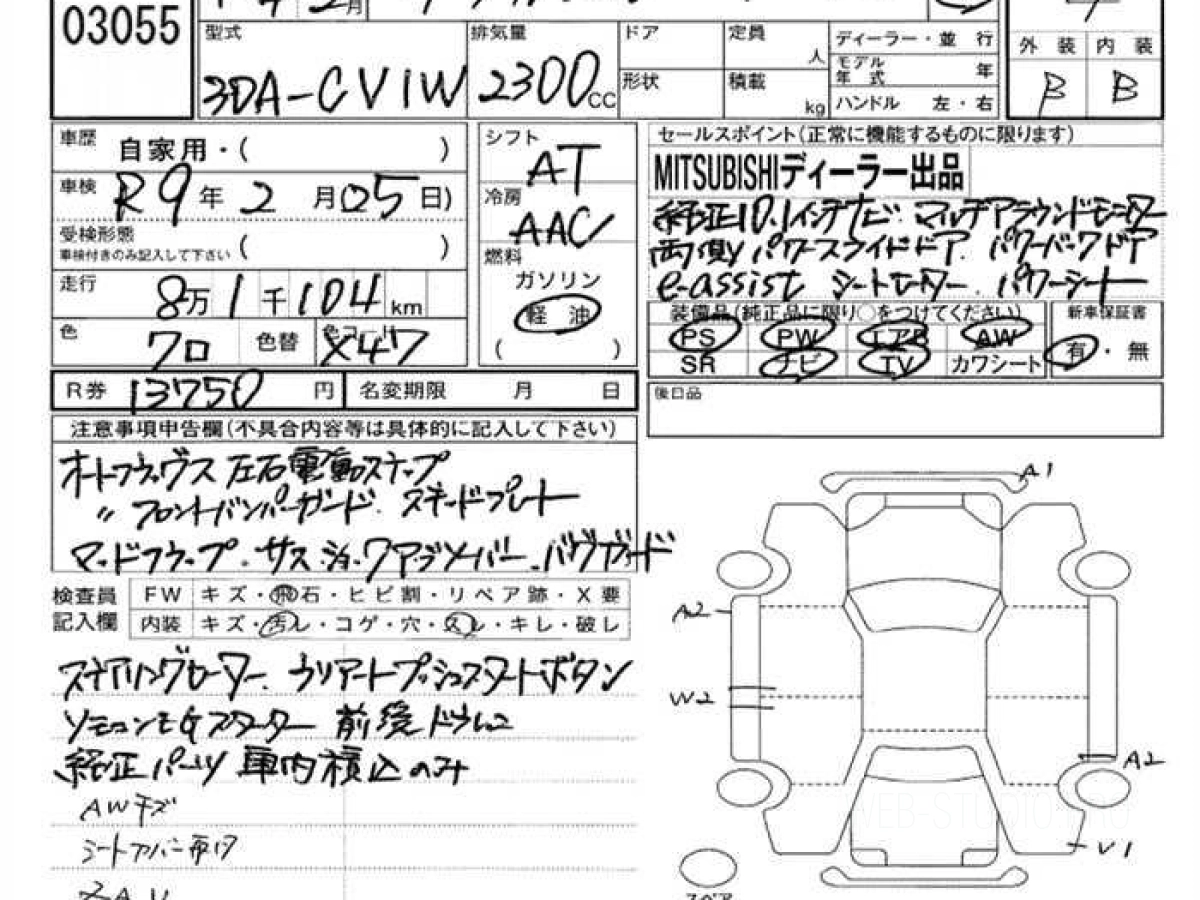 03055
月
型式
3DA-CV1W
排気量
2300cc
ドア
形状
定員
人
積載
kg
ディーラー・並 行
モデル年式 年
ハンドル 左・右
外 装
内 装
B
B
車歴 自家用・( )
車検 R9年2月(05日)
受検形態
車検付きのみ記入して下さい ( )
走行 8万1千104km
色 クロ
色替
色コード X47
シフト AT
冷房 AAC
燃料
ガソリン
軽 油
( )
セールスポイント(正常に機能するものに限ります)
MITSUBISHIディーラー出品
純正10.1インチナビ マルチアラウンドモニター
両側パワースライドドア パワーバックドア
e-assist シートヒーター パワーシート
装備品(純正品に限り○をつけてください)
PS PW エアB AW
SR ナビ TV カワシート
新車保証書
有・無
R券 13750円
名変期限 月 日
後日品
注意事項申告欄(不具合内容等は具体的に記入して下さい)
オートフラッグス 左右電動ステップ
〃 フロントバンパーガード スキードプレート
マッドフラップ・サス・ショックアブソーバー
検査員記入欄
FW キズ・飛石・ヒビ割・リペア跡・X要
内装 キズ・汚レ・コゲ・穴・スレ・キレ・破レ
ステアリングヒーター ラリアートプッシュスタートボタン
リモコンEGスターター 前後ドラレコ
純正パーツ 車内積込のみ
AWキズ
A1
A2
W2
A2
V1
スペア
WEB-STUDIO.PRO